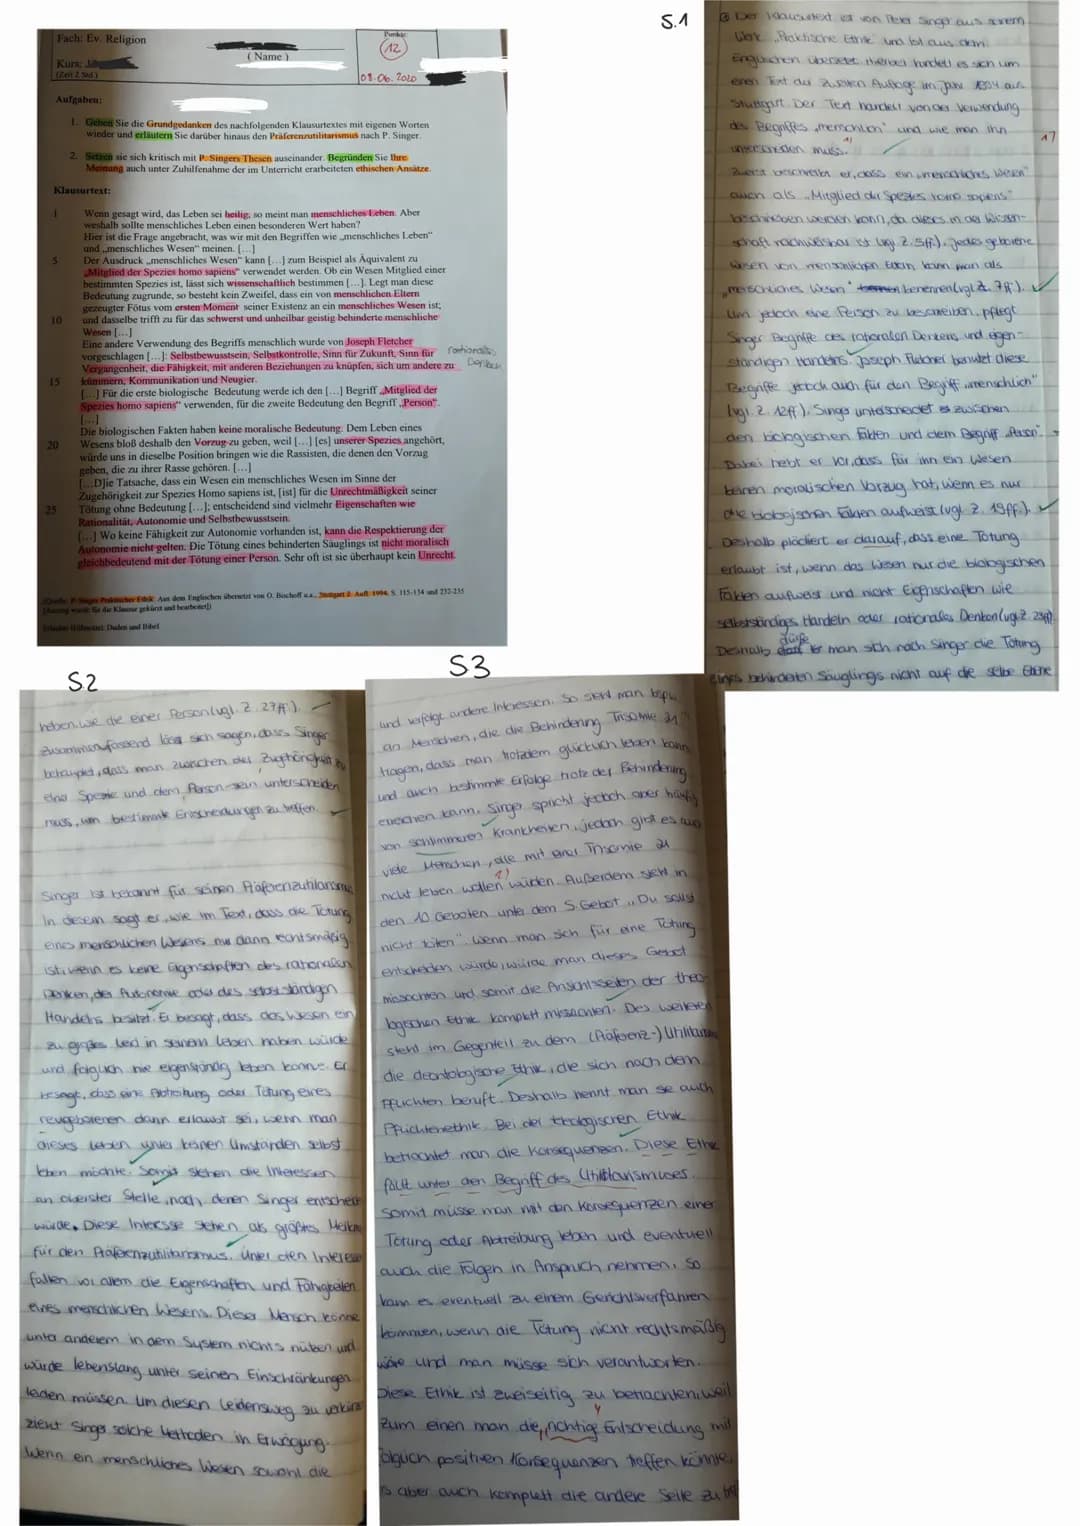 Fach: Ev. Religion
( Name )
Punkte:
12
Kurs:
(Zeit 2 Std.)
08.06.2020
Aufgaben:
1. Geben Sie die Grundgedanken des nachfolgenden Klausurtextes mit eigenen Worten
wieder und erläutern Sie darüber hinaus den Präferenzutilitarismus nach P. Singer.
2. Setzen sie sich kritisch mit P. Singers Thesen auseinander. Begründen Sie Ihre
Meinung auch unter Zuhilfenahme der im Unterricht erarbeiteten ethischen Ansätze.
Klausurtext:
1 Wenn gesagt wird, das Leben sei heilig, so meint man menschliches Leben. Aber
weshalb sollte menschliches Leben einen besonderen Wert haben?
Hier ist die Frage angebracht, was wir mit den Begriffen wie „menschliches Leben"
und „menschliches Wesen" meinen. [...]
5 Der Ausdruck „menschliches Wesen" kann [...] zum Beispiel als Äquivalent zu
„Mitglied der Spezies homo sapiens" verwendet werden. Ob ein Wesen Mitglied einer
bestimmten Spezies ist, lässt sich wissenschaftlich bestimmen [...]. Legt man diese
Bedeutung zugrunde, so besteht kein Zweifel, dass ein von menschlichen Eltern
gezeugter Fötus vom ersten Moment seiner Existenz an ein menschliches Wesen ist;
10 und dasselbe trifft zu für das schwerst und unheilbar geistig behinderte menschliche
Wesen [...]
Eine andere Verwendung des Begriffs menschlich wurde von Joseph Fletcher
vorgeschlagen [...]: Selbstbewusstsein, Selbstkontrolle, Sinn für Zukunft, Sinn für
Vergangenheit, die Fähigkeit, mit anderen Beziehungen zu knüpfen, sich um andere zu
rationales
Denken
15 kümmern, Kommunikation und Neugier.
[...] Für die erste biologische Bedeutung werde ich den [...] Begriff „Mitglied der
Spezies homo sapiens" verwenden, für die zweite Bedeutung den Begriff „Person".
[...]
Die biologischen Fakten haben keine moralische Bedeutung. Dem Leben eines
20 Wesens bloß deshalb den Vorzug zu geben, weil [...] [es] unserer Spezies angehört,
würde uns in dieselbe Position bringen wie die Rassisten, die denen den Vorzug
geben, die zu ihrer Rasse gehören. [...]
[...D]ie Tatsache, dass ein Wesen ein menschliches Wesen im Sinne der
Zugehörigkeit zur Spezies Homo sapiens ist, [ist] für die Unrechtmäßigkeit seiner
25 Tötung ohne Bedeutung [...]; entscheidend sind vielmehr Eigenschaften wie
Rationalität, Autonomie und Selbstbewusstsein.
[...] Wo keine Fähigkeit zur Autonomie vorhanden ist, kann die Respektierung der
Autonomie nicht gelten. Die Tötung eines behinderten Säuglings ist nicht moralisch
gleichbedeutend mit der Tötung einer Person. Sehr oft ist sie überhaupt kein Unrecht.
(Quelle: P. Singer Praktischer Ethik. Aus dem Englischen übersetzt von O. Bischoff u.a., Stuttgart 2. Aufl. 1994, S. 115-134 und 232-235
[Auszug wurde für die Klausur gekürzt und bearbeitet])
Erlaubte Hilfsmittel: Duden und Bibel
S.1
Der Klausurtext ist von Peter Singer aus seinem
Werk „Praktische Ethik" und ist aus dem
Englischen übersetzt. Hierbei handelt es sich um
einen Text der zweiten Auflage im Jahr 1994 aus
Stuttgart. Der Text handelt von der Verwendung
des Begriffes „menschlich" und wie man ihn
unterscheiden muss.
Zuerst beschreibt er, dass ein „menschliches Wesen"
auch als „Mitglied der Spezies homo sapiens"
beschrieben werden kann, da dieses in der Wissen-
schaft nachweisbar ist (vgl. Z. 5ff.). Jedes geborene
Wesen von menschlichen Eltern, kann man als
„menschliches Wesen" benennen (vgl. Z. 7ff.).
Um jedoch eine Person zu beschreiben, pflegt
Singer Begriffe des rationalen Denkens und eigen-
ständigen Handelns. Joseph Fletcher benutzt diese
Begriffe jedoch auch für den Begriff „menschlich"
(vgl. Z. 12ff.). Singer unterscheidet es zwischen
den biologischen Fakten und dem Begriff „Person".
Dabei hebt er vor, dass für ihn ein Wesen
keinen moralischen Vorzug hat, wenn es nur
die biologischen Fakten aufweist (vgl. Z. 19ff.).
Deshalb plädiert er darauf, dass eine Tötung
erlaubt ist, wenn das Wesen nur die biologischen
Fakten aufweist und nicht Eigenschaften wie
selbstständiges Handeln oder rationales Denken (vgl. Z. 23ff).
Deshalb dürfe man sich nach Singer die Tötung
eines behinderten Säuglings nicht auf die selbe Ebene
S2
heben, wie die einer Person (vgl. Z. 27ff.).
Zusammenfassend lässt sich sagen, dass Singer
behauptet, dass man zwischen der Zugehörigkeit zu
einer Spezie und dem Person-sein unterscheiden
muss, um bestimmte Entscheidungen zu treffen.
Singer ist bekannt für seinen Präferenzutilitarismus.
In diesem sagt er, wie im Text, dass die Tötung
eines menschlichen Wesens nur dann rechtsmäßig
ist, wenn es keine Eigenschaften des rationalen
Denken, der Autonomie oder des selbstständigen
Handelns besitzt. Er besagt, dass das Wesen ein
zu großes Leid in seinem Leben haben würde
und folglich nie eigenständig leben könne. Er
besagt, dass eine Abtreibung oder Tötung eines
neugeborenen dann erlaubt sei, wenn man
dieses Leben unter keinen Umständen selbst
leben möchte. Somit stehen die Interessen
an oberster Stelle, nach denen Singer entscheiden
würde. Diese Interesse stehen als größtes Merkmal
für den Präferenzutilitarismus. Unter den Interesse
fallen vor allem die Eigenschaften und Fähigkeiten
eines menschlichen Wesens. Dieser Mensch könne
unter anderem in dem System nichts nützen und
würde lebenslang unter seinen Einschränkungen
leiden müssen. Um diesen Leidensweg zu verkürzen
zieht Singer solche Methoden in Erwägung.
Wenn ein menschliches Wesen sowohl die
S3
und verfolge andere Interessen. So sieht man bspw.
an Menschen, die die Behinderung Trisomie 21
tragen, dass man trotzdem glücklich leben kann
und auch bestimmte Erfolge trotz der Behinderung
erreichen kann. Singer spricht jedoch aber häufig
von schlimmeren Krankheiten, jedoch gibt es auch
viele Menschen, die mit einer Trisomie 21
nicht leben wollen würden. Außerdem steht in
den 10 Geboten unter dem 5. Gebot „Du sollst
nicht töten". Wenn man sich für eine Tötung
entscheiden würde, würde man dieses Gebot
missachten und somit die Ansichtsseiten der theo-
logischen Ethik komplett missachten. Des weiteren
steht im Gegenteil zu dem (Präferenz-) Utilitarismus
die deontologische Ethik, die sich nach dem
Pflichten beruft. Deshalb nennt man sie auch
Pflichtenethik. Bei der teleologischen Ethik
betrachtet man die Konsequenzen. Diese Ethik
fällt unter den Begriff des Utilitarismuses.
Somit müsse man mit den Konsequenzen einer
Tötung oder Abtreibung leben und eventuell
auch die Folgen in Anspruch nehmen. So
kann es eventuell zu einem Gerichtsverfahren
kommen, wenn die Tötung nicht rechtsmäßig
wäre und man müsse sich verantworten.
Diese Ethik ist zweiseitig zu betrachten, weil
zum einen man die „richtige" Entscheidung mit
folglich positiven Konsequenzen treffen könnte,
aber auch komplett die andere Seite zu